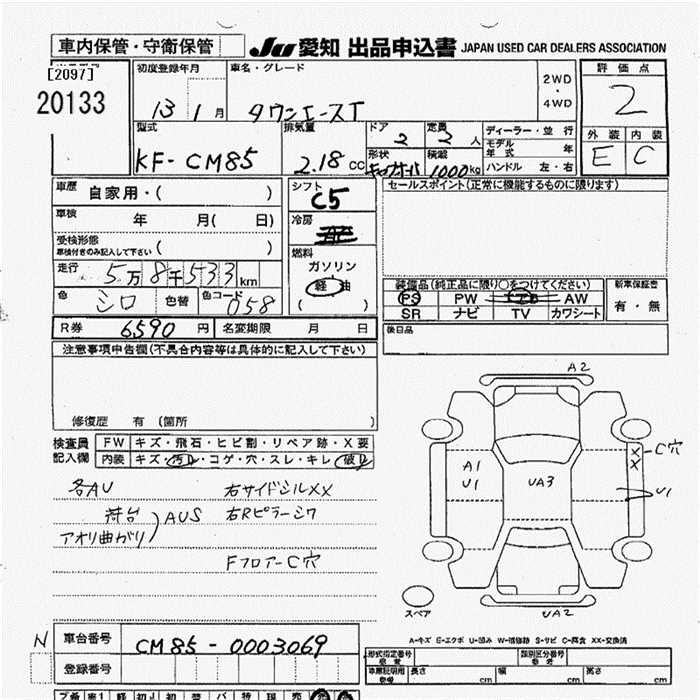 車内保管・守衛保管 JU 愛知 出品申込書 JAPAN USED CAR DEALERS ASSOCIATION
[2097]
20133
初度登録年月 車名・グレード 2WD・4WD 評価点
13 1月 タウンエースT 2
型式 排気量 ドア 定員 ディーラー・並行 外装 内装
KF-CM85 2.18CC 2 2人 モデル年式 年 E C
形状 積載 ハンドル 左・右
1000kg
車歴 自家用・( ) シフト C5 セールスポイント(正常に機能するものに限ります)
車検 年 月( 日) 冷房
受検形態 ( )
車検付きのみ記入して下さい
燃料
走行 5万8千533km ガソリン
色 シロ 色替 色コード 058 軽油 ( )
装備品(純正品に限り○をつけてください) 新車保証書
PS PW AW 有・無
SR ナビ TV カワシート
R券 6590円 名変期限 月 日 後日品
注意事項申告欄(不具合内容等は具体的に記入して下さい)
修復歴 有 (箇所 )
検査員記入欄 FW キズ・飛石・ヒビ割・リペア跡・X要
内装 キズ・汚れ・コゲ・穴・スレ・キレ・破れ
各AU 右サイドシルXX
荷台 AUS 右Rピラーシワ
アオリ曲がり
FフロアーC穴
A2
A1
U1
UA3
X
X
C穴
U1
UA2
スペア
A=キズ E=エクボ U=凹み W=補修跡 S=サビ C=腐食 XX=交換済
N 車台番号 CM85-0003069
登録番号
型式指定番号 類別区分番号
参考 参考
車庫証明用 参考 長さ cm 幅 cm 高さ cm